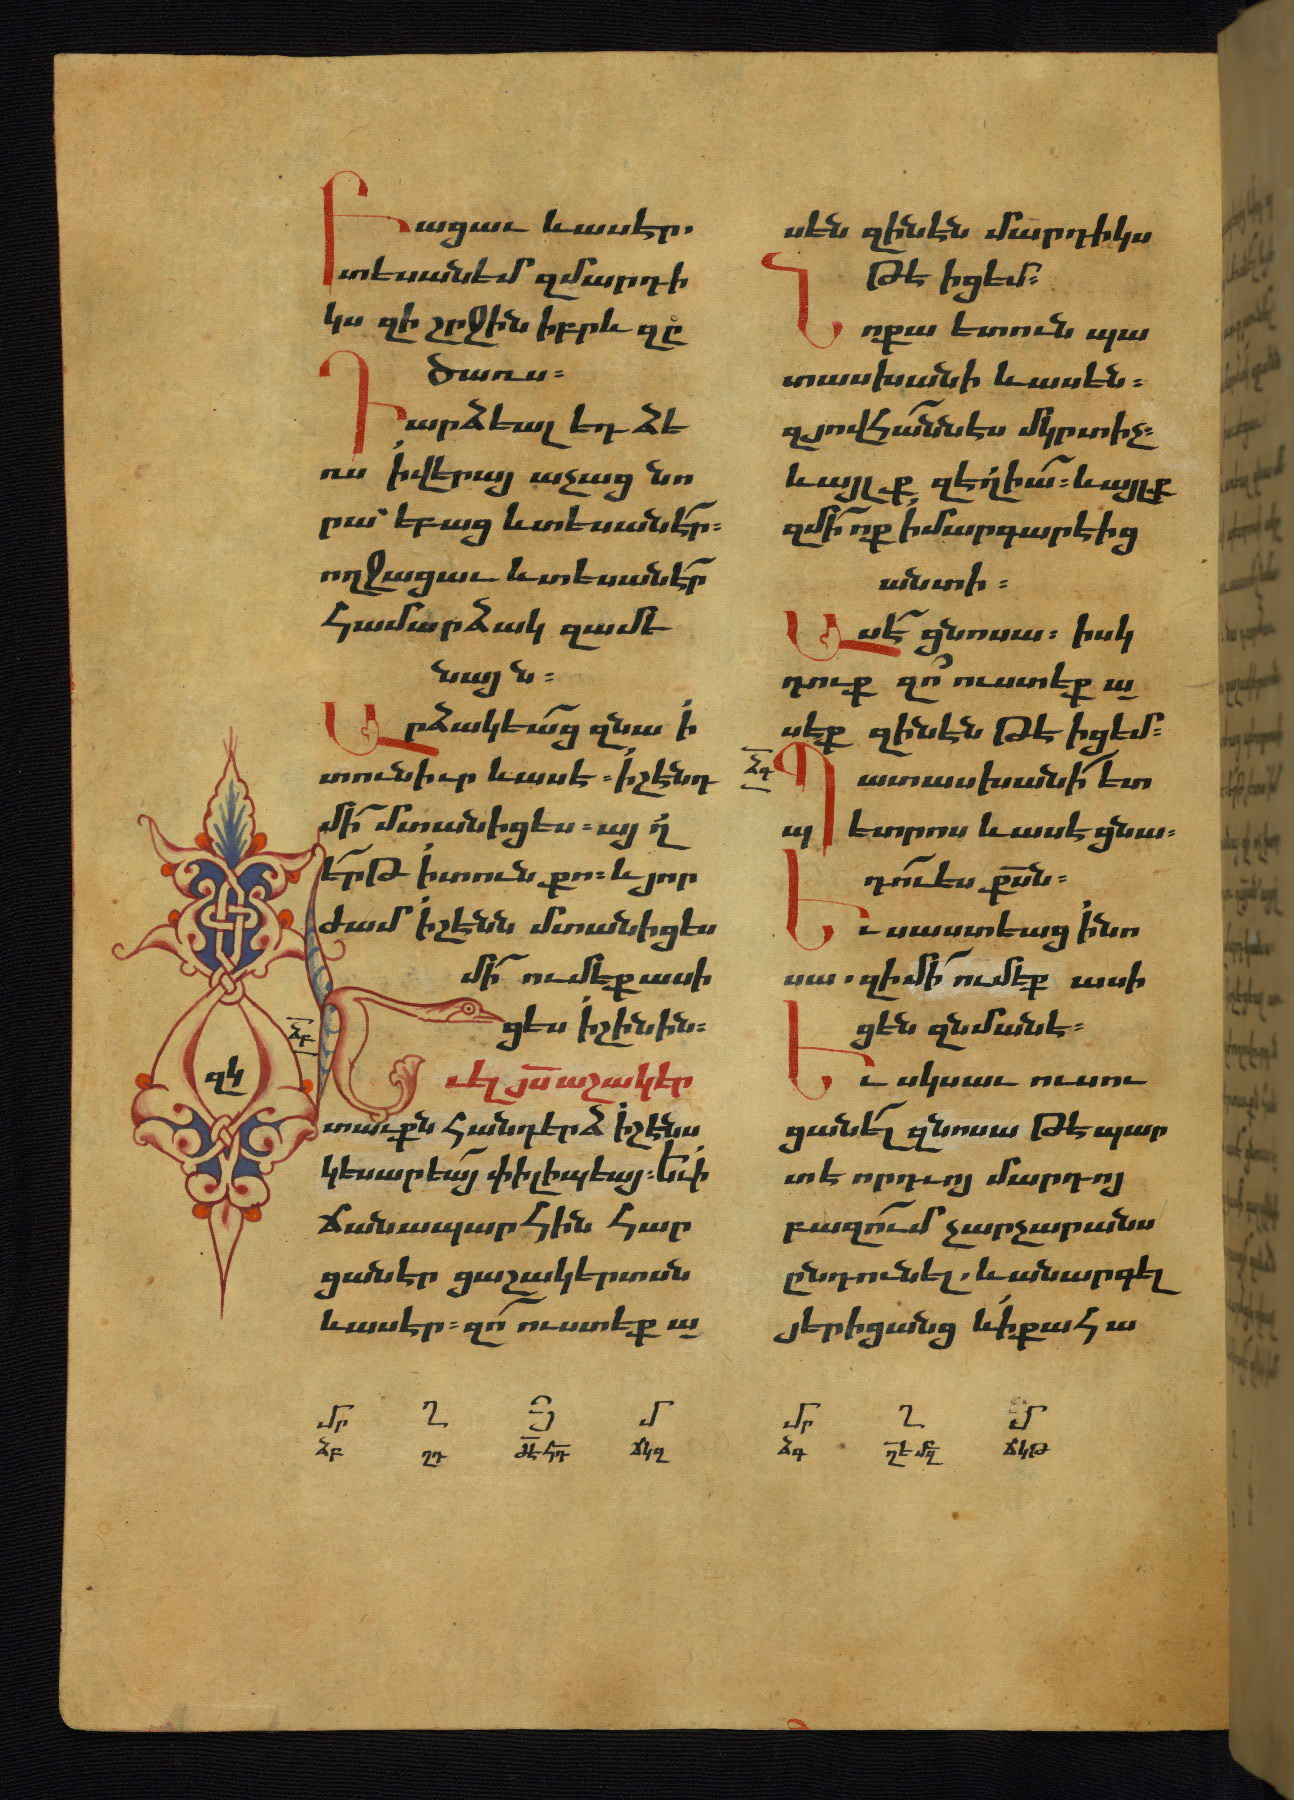 Բացաւ և ասէր.
տեսանեմ զմարդի
կս զի շրջին իբրև զը
ծառս։
Դարձեալ եդ ձե
ռս ի վերայ աչաց նո
րա՝ եբաց և տեսանէր։
ողջացաւ և տեսանէր
համարձակ զամե
նայն։
Արձակեաց զնա ի
տուն իւր և ասէ։ ի շէնդ
մի մտանիցես։ այղ
երթ ի տուն քո։ և յոր
ժամ ի շէնն մտանիցես
մի ումեք ասի
ցես ի շինին։
ձբ
զկ
Եւ ել յս աշակեր
տաւքն հանդերձ ի շէնս
կեսարեայ փիլիպեայ։ և ի
ճանապարհին հար
ցանէր ցաշակերտսն
և ասէր։ զո ուստեք ա
սեն զինէն մարդիկս
թե իցեմ։
Նոքա ետուն պա
տասխանի և ասեն։
զյովհաննես մկրտիչ։
և այլք զեղիա։ և այլք
զմի ոք ի մարգարէից
անտի։
Ասէ ցնոսա։ իսկ
դուք զո ուստեք ա
սեք զինէն թե իցեմ։
ձգ
Պատասխանի ետ
պետրոս և ասէ ցնա։
դու ես քսն։
Եւ սաստեաց ի նո
սա. զի մի ումեք ասի
ցեն զնմանե։
Եւ սկսաւ ուսու
ցանել զնոսա թե պար
տե որդւոյ մարդոյ
բազում չարչարանս
ընդունել. և անարգել
յերիցանց և ի քահա
մր Ղ Յ մ
ձբ ղդ ձկզ
մր Ղ մ
ձգ ճկթ